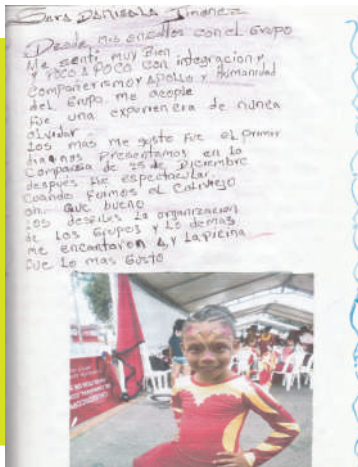 Sara DANISELA Jimenez
Desde mis ensallos con el Grupo
Me senti muy Bien
y Poco A Poco con integracion y
compañerismo y APollo y Humanidad
del Grupo. me acople
Fue una experencia de nunca
olvidar.
Los mas me gusto Fue el primer
dia q nos Presentamos en la
Comparsa de 25 de Diciembre
despues Fue espectacular.
Cuando Fuimos al Calivejo
oh. Que bueno
Los desfiles La organizacion
de Los Grupos y Lo demas
me encantaron y La Picina
Fue Lo mas Gusto